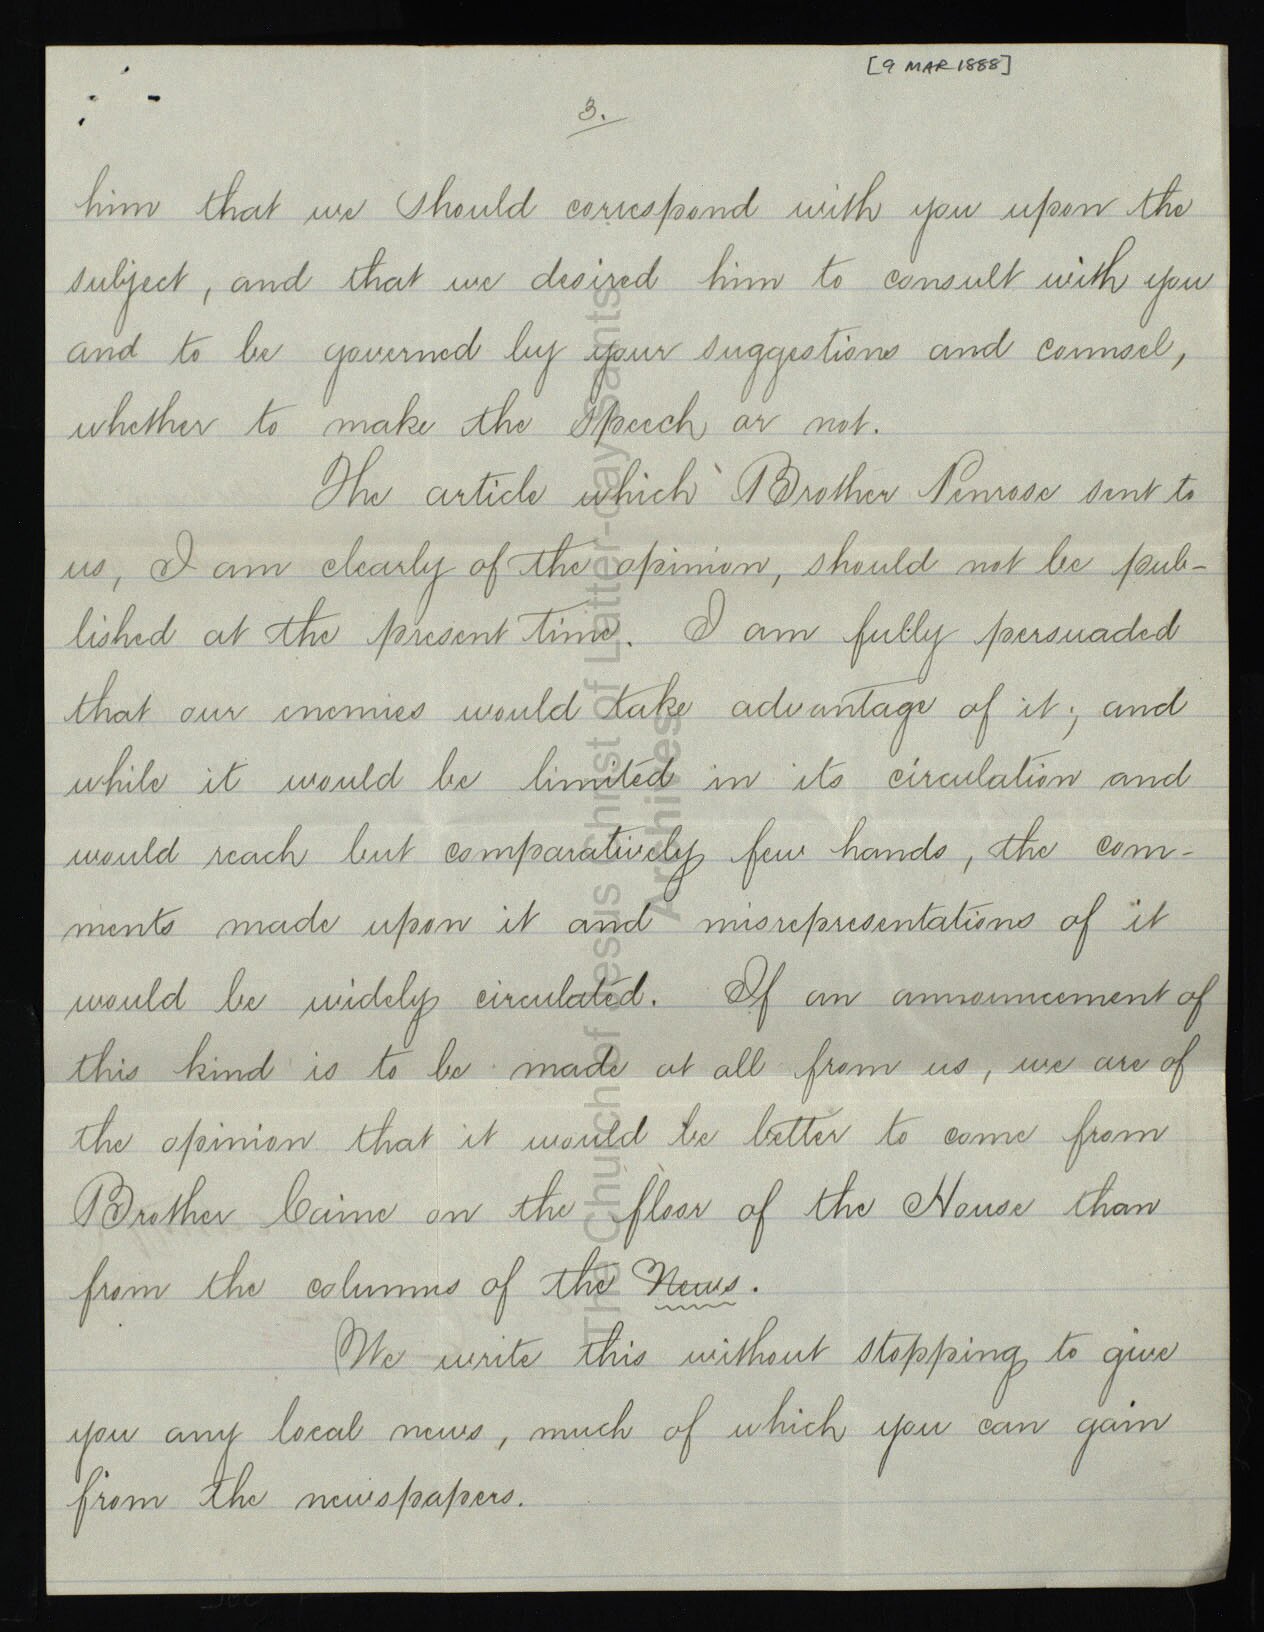 [9 MAR 1888]
3.
him that we should correspond with you upon the
subject, and that we desired him to consult with you
and to be governed by your suggestions and counsel,
whether to make the speech or not.
The article which Brother Penrose sent to
us, I am clearly of the opinion, should not be pub-
lished at the present time. I am fully persuaded
that our enemies would take advantage of it; and
while it would be limited in its circulation and
would reach but comparatively few hands, the com-
ments made upon it and misrepresentations of it
would be widely circulated. If an announcement of
this kind is to be made at all from us, we are of
the opinion that it would be better to come from
Brother Caine on the floor of the House than
from the columns of the News.
We write this without stopping to give
you any local news, much of which you can gain
from the newspapers.
The Church of Jesus Christ of Latter-day Saints
Archives